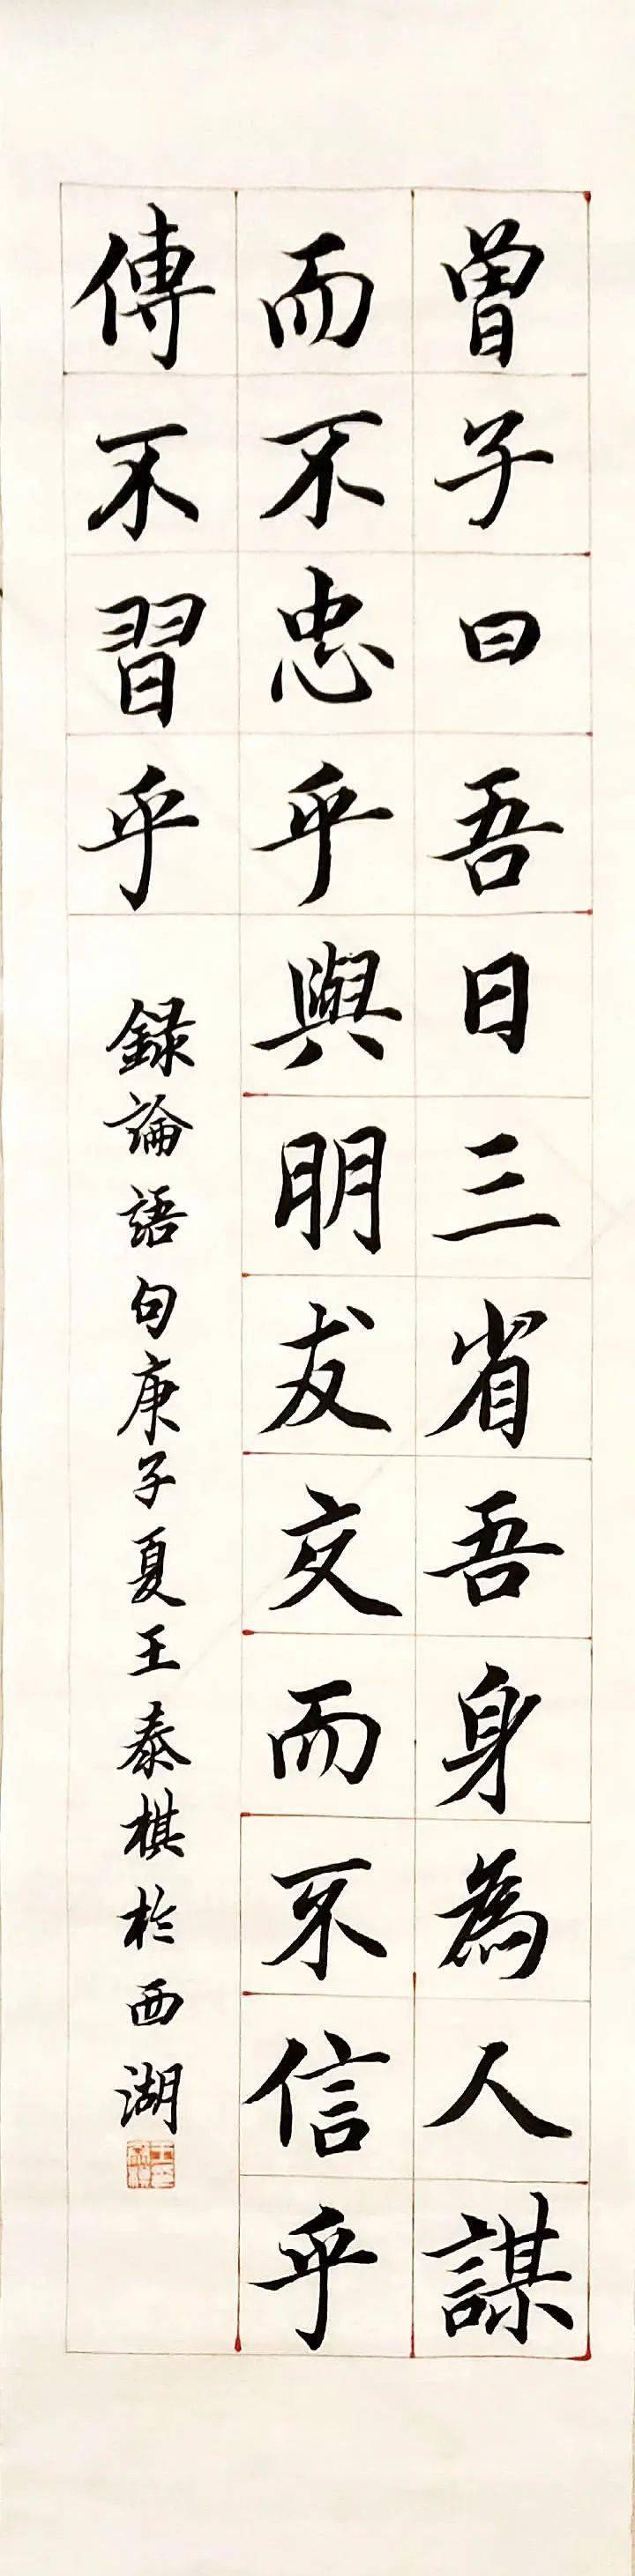 曾子曰吾日三省吾身為人謀
而不忠乎與朋友交而不信乎
傳不習乎
錄論語句庚子夏王泰棋於西湖